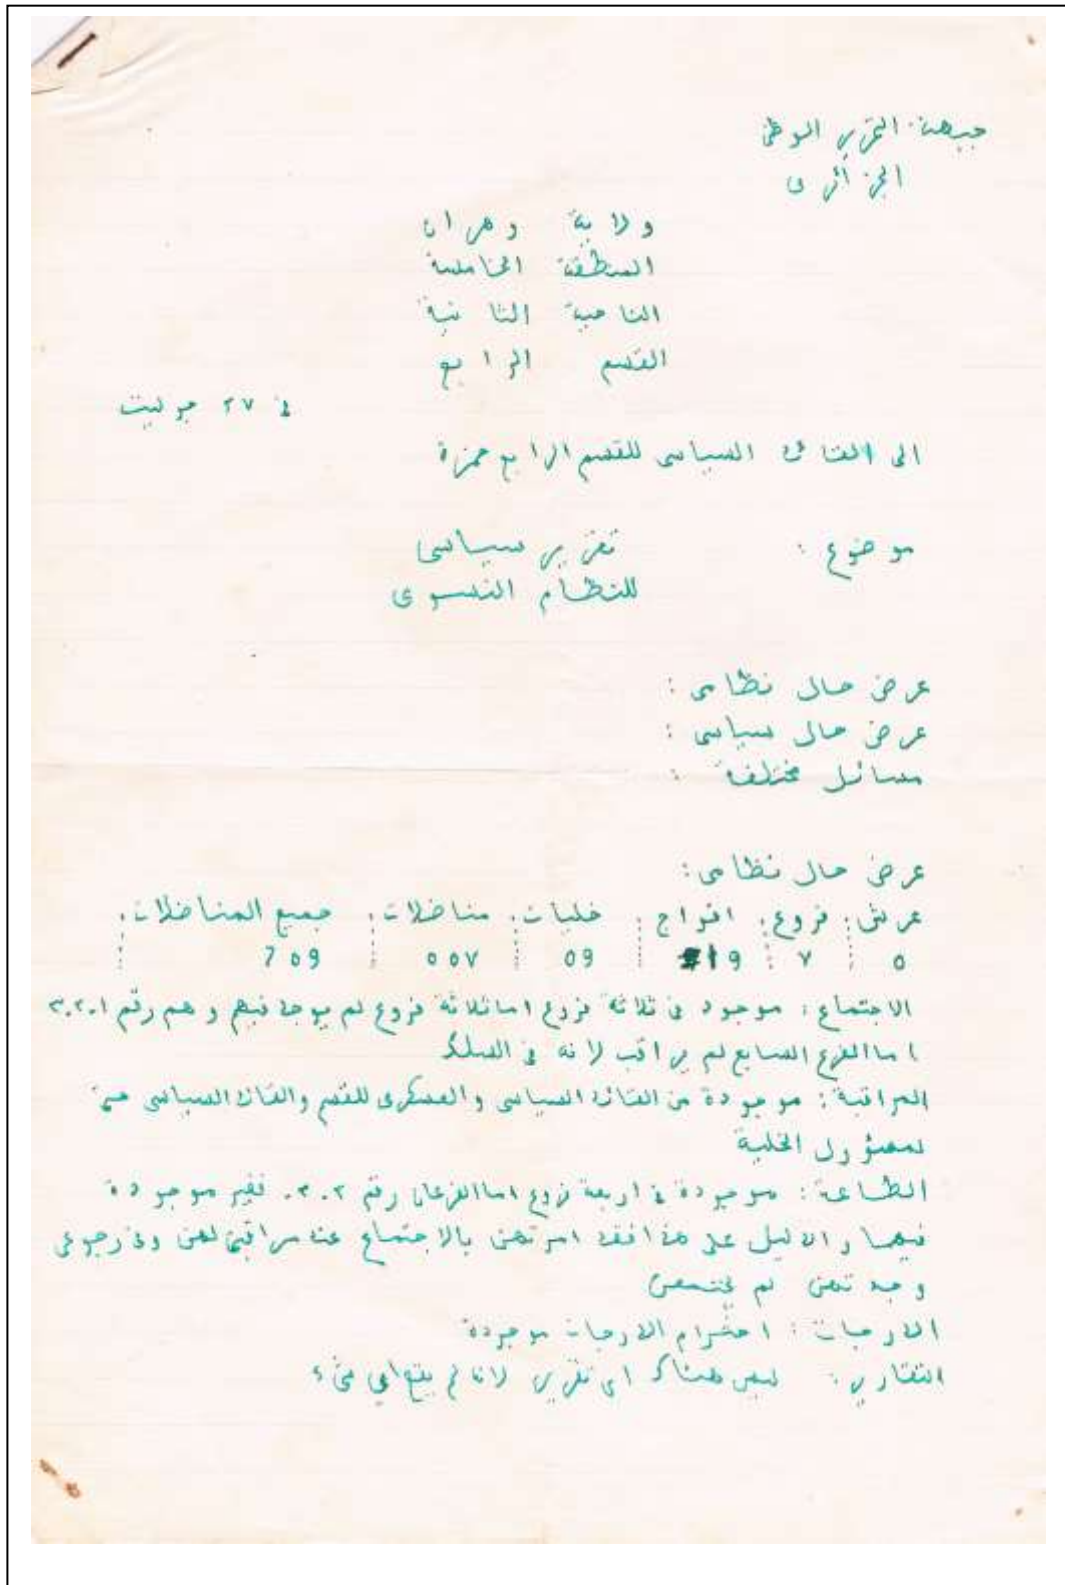 جبهة التحرير الوطني
الجزائري
ولاية وهران
المنطقة الخامسة
الناحية الثانية
القسم الرابع
في ٢٧ جوليت
الى القائد السياسي للقسم الرابع حمزة
موضوع : تقرير سياسي
للنظام النسوي
عرض حال نظامي :
عرض حال سياسي :
مسائل مختلفة :
عرض حال نظامي :
عرش : فروع : افواج : خليات : مناضلات : جميع المناضلات :
٥ ٧ 19 ٥9 ٥٥٧ 7٥9
الاجتماع : موجود في ثلاثة فروع اما ثلاثة فروع لم يوجد فيهم وهم رقم ١.٢.٣
اما الفرع السابع لم يراقب لانه في السلك
المراقبة : موجودة من القائد السياسي والعسكري للقسم والقائد السياسي حتى
لمسؤول الخلية
الطاعة : موجودة في اربعة فروع اما الفرعان رقم ٢.٣. فغير موجودة
فيهما والدليل على هذا فقد امرتهن بالاجتماع عند مراقبتي لهن وفي رجوعي
وجدتهن لم يجتمعن
الدرجات : احترام الدرجات موجودة
التقارير : ليس هناك اي تقرير لانا لم يقع اي شيء